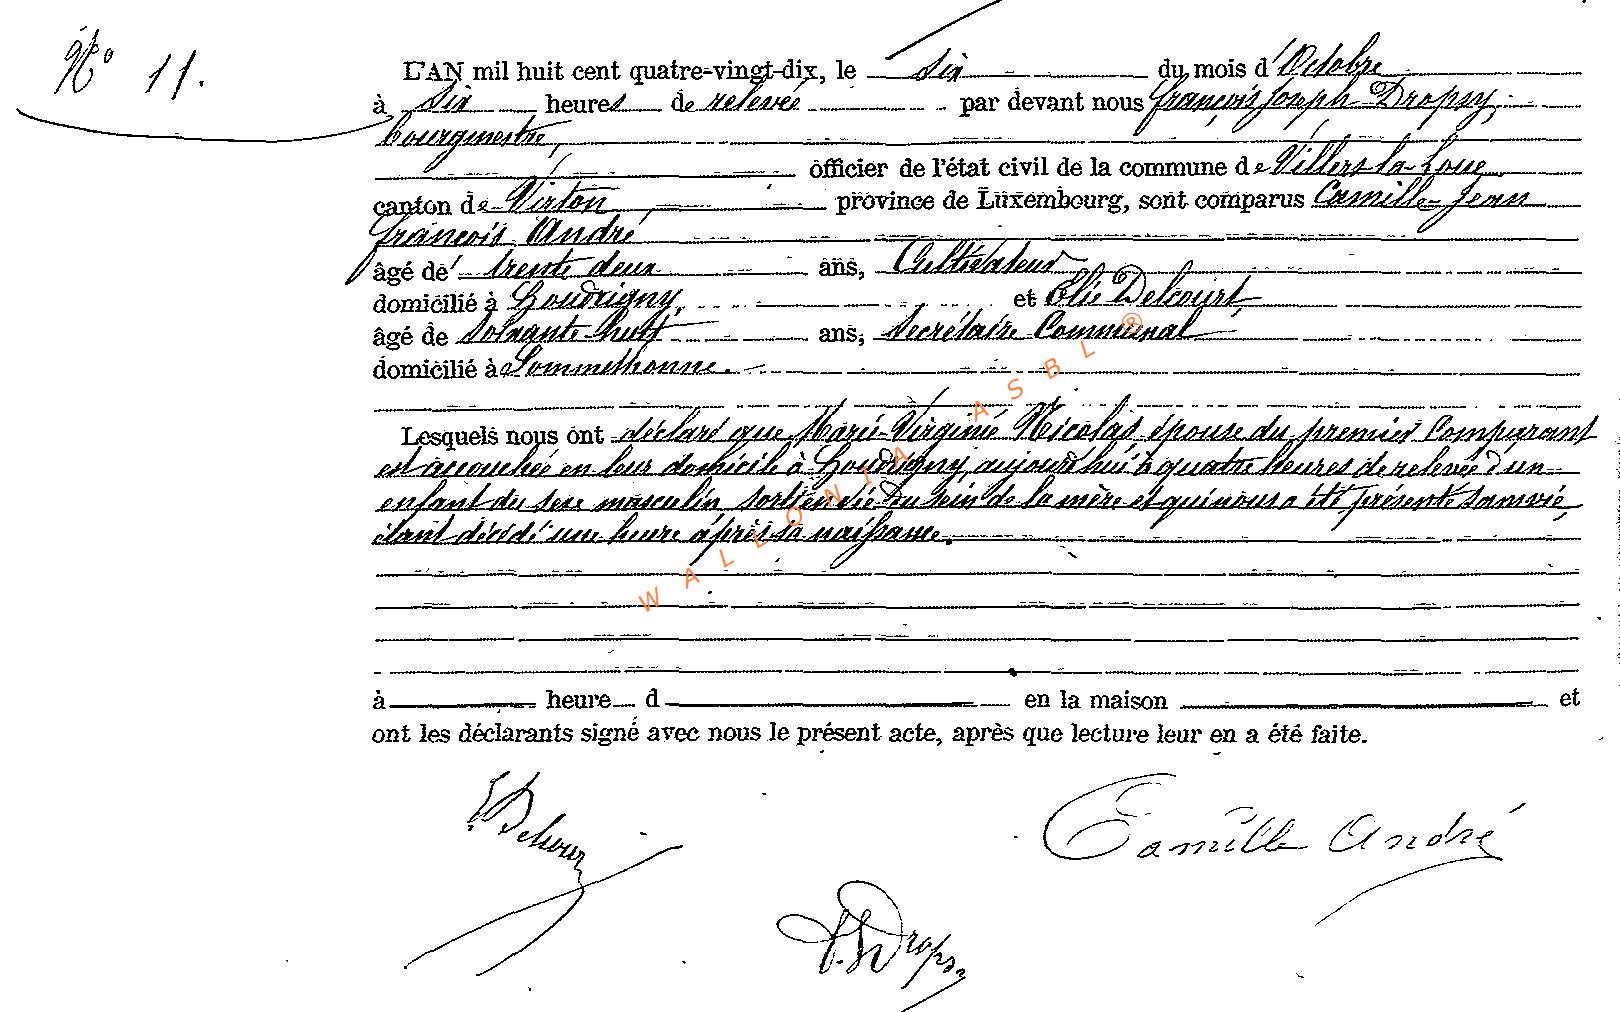 N° 11.
L'AN mil huit cent quatre-vingt-dix, le six du mois d'Octobre
à six heures de relevée par devant nous françois Joseph Dropsy,
bourgmestre,
officier de l'état civil de la commune de Villers la Loue
canton de Virton, province de Luxembourg, sont comparus Camille Jean
françois André
âgé de trente deux ans, Cultivateur
domicilié à Houdrigny, et Elie Delcourt,
âgé de soixante huit ans, Secrétaire Communal
domicilié à Sommethonne.
Lesquels nous ont déclaré que Marie-Virginie Nicolas épouse du premier Comparant
est accouchée en leur domicile à Houdrigny, aujourd'hui à quatre heures de relevée d'un
enfant du sexe masculin, sorti en vie du sein de la mère et qui nous a été présenté sans vie,
étant décédé une heure après sa naissance.
à heure d en la maison et
ont les déclarants signé avec nous le présent acte, après que lecture leur en a été faite.
E Delcour
Camille André
F. J. Dropsy
WALLONIA ASBL ®